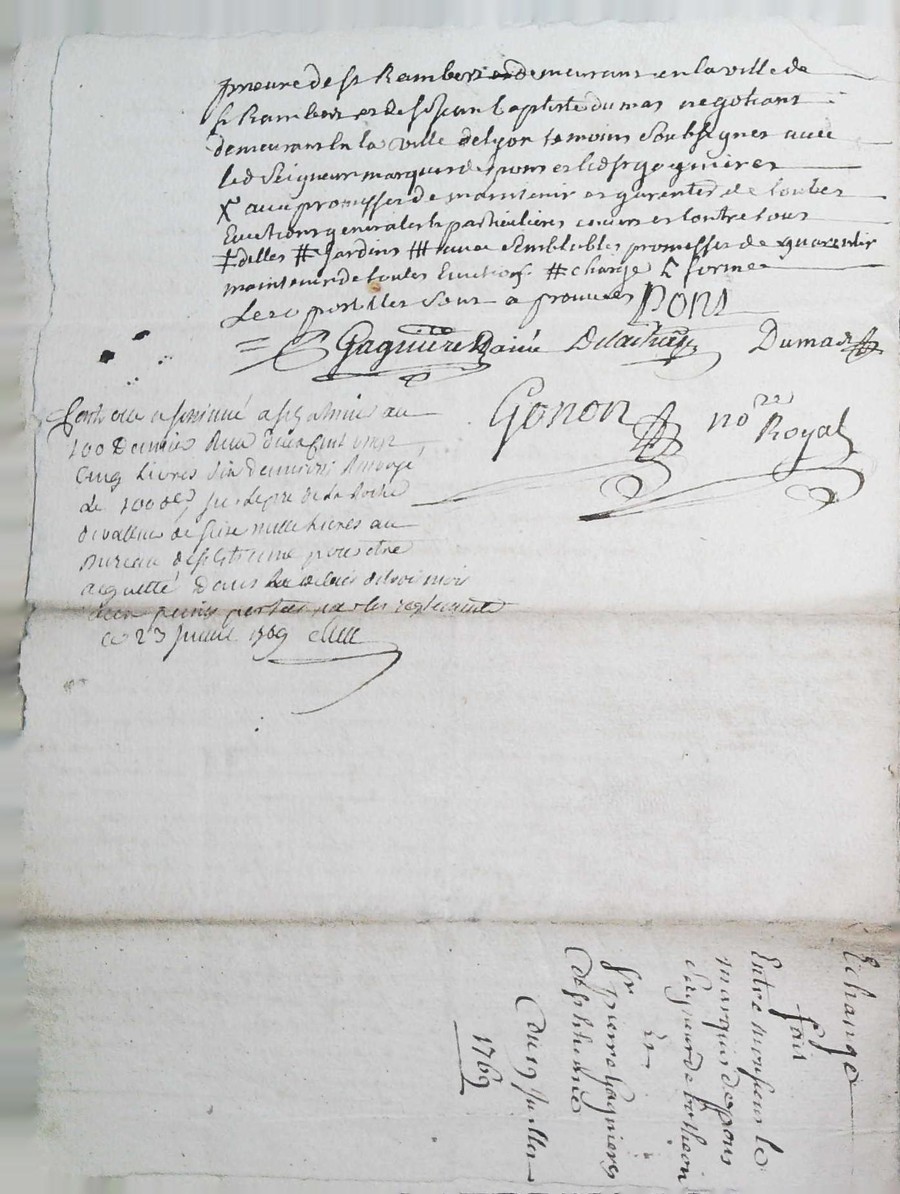 prieure de st Rambert et demeurant en la ville de
st Rambert et de sr jean baptiste dumas negotiant
demeurant En la ville de lyon temoins Soubsignes avec
led Seigneur marquis de pons et led sr gagnieres
X avec promesse de maintenir et garentir de toutes
Evictions generales et particulieres envers et contre tous
‡ delles # jardins ## avec semblables promesses de garentir
maintenir de toutes Evictions # charge & former
Les postilles sont aprouvees Pons
Gagniere Lainé Delachaize Dumas
Gonon no.re
Royal
Controllé a st
100 Deniers Reçu
Cinq Livres dix deniers
Le 100e
de valleur de seize mille livres au
Bureau de st Etienne pour etre
acquitté Dans Le delai de trois mois
aux peines portées par les reglements
ce 23 juillet 1769
Echange
fait
Entre monsieur le
marquis de pons
seigneur de botheon
Et
Sr pierre Gagnieres
de st etienne
Du 19 Juillet
1769